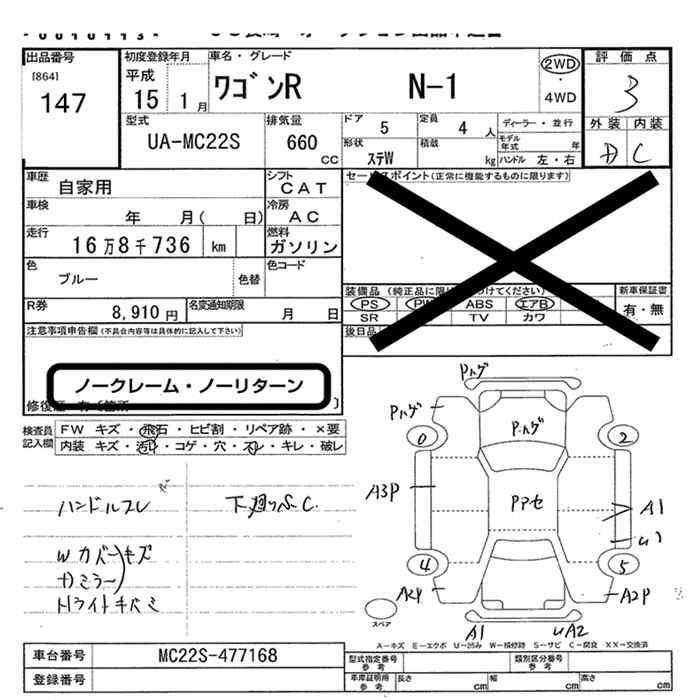 出品番号
[864]
147
初度登録年月
平成
15 1月
車名・グレード
ワゴンR N-1
2WD
・
4WD
評価点
3
外装 内装
D C
型式
UA-MC22S
排気量
660
CC
ドア
5
定員
4 人
形状
ステW
積載
kg
ディーラー・並行
モデル年式 年
ハンドル 左・右
車歴
自家用
シフト
CAT
車検
年 月( 日)
冷房
AC
走行
16万8千736 km
燃料
ガソリン
色
ブルー
色替
色コード
R券
8,910円
名変通知期限
月 日
セールスポイント(正常に機能するものに限ります)
PS PW ABS エアB
SR TV カワ
新車保証書
有・無
後日品
注意事項申告欄(不具合内容等は具体的に記入して下さい)
ノークレーム・ノーリターン
検査員
記入欄
FW キズ・飛石・ヒビ割・リペア跡・×要
内装 キズ・汚れ・コゲ・穴・スレ・キレ・破レ
ハンドルスレ
Wカバーキズ
ドミラー
下廻りS.C.
Pハゲ
Pハゲ
Pハゲ
0
2
A3P
Pアセ
A1
4
5
A2P
A2P
A1
UA2
スペア
A-キズ E-エクボ U-凹み W-補修跡 S-サビ C-腐食 XX-交換済
車台番号
MC22S-477168
登録番号
型式指定番号
参考
類別区分番号
参考
車庫証明用
参考
長さ cm
幅 cm
高さ cm